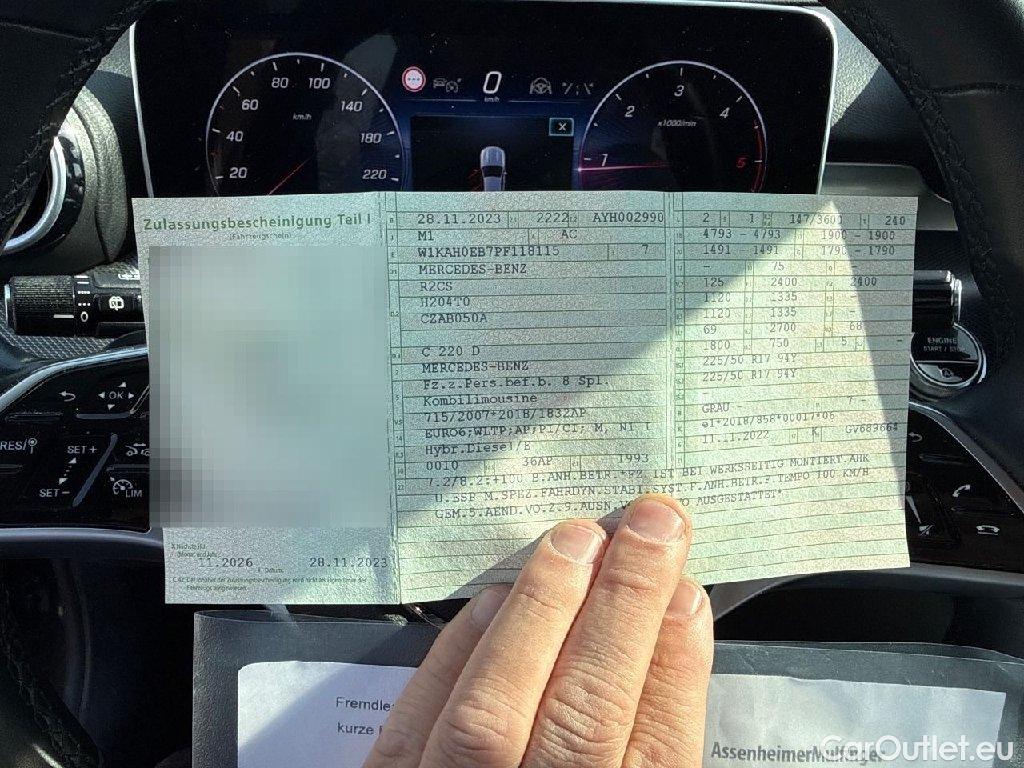 80 100
60 140
40 180
20 220
km/h
0
km/h
1 2 3 4 5
x1000/min
Zulassungsbescheinigung Teil I
(Fahrzeugschein)
28.11.2023 2222 AYH002990
M1 AC
W1KAH0EB7PF118115 7
MERCEDES-BENZ
R2CS
H204T0
CZAB050A
C 220 D
MERCEDES-BENZ
Fz.z.Pers.bef.b. 8 Spl.
Kombilimousine
715/2007*2018/1832AP
EURO6;WLTP;AP;PI/CI; M, N1 I
Hybr.Diesel/E
0010 36AP 1993
7.2/8.2:+100 B.ANH.BETR.*FZ IST BEI WERKSSEITIG MONTIERT.AHK
U.ESP M.SPEZ.FAHRDYN.STABI.SYST.F.ANH.BETR.F.TEMPO 100 KM/H
GEM.5.AEND.VO.Z.9.AUSN.V AUSGESTATTET*
2 1 147/3600 240
4793 - 4793 1900 - 1900
1491 - 1491 1790 - 1790
- 75 -
125 2400 2400
1120 1335 -
1120 1335 -
69 2700 68
1800 750 5 -
225/50 R17 94Y
225/50 R17 94Y
GRAU - 7 -
e1*2018/858*00017*06
11.11.2022 K GV689664
11.2026 28.11.2023
OK
RES/
SET +
SET -
LIM
ENGINE
START / STOP
Fremdle
kurze
AssenheimerMulfinger
CarOutlet.eu